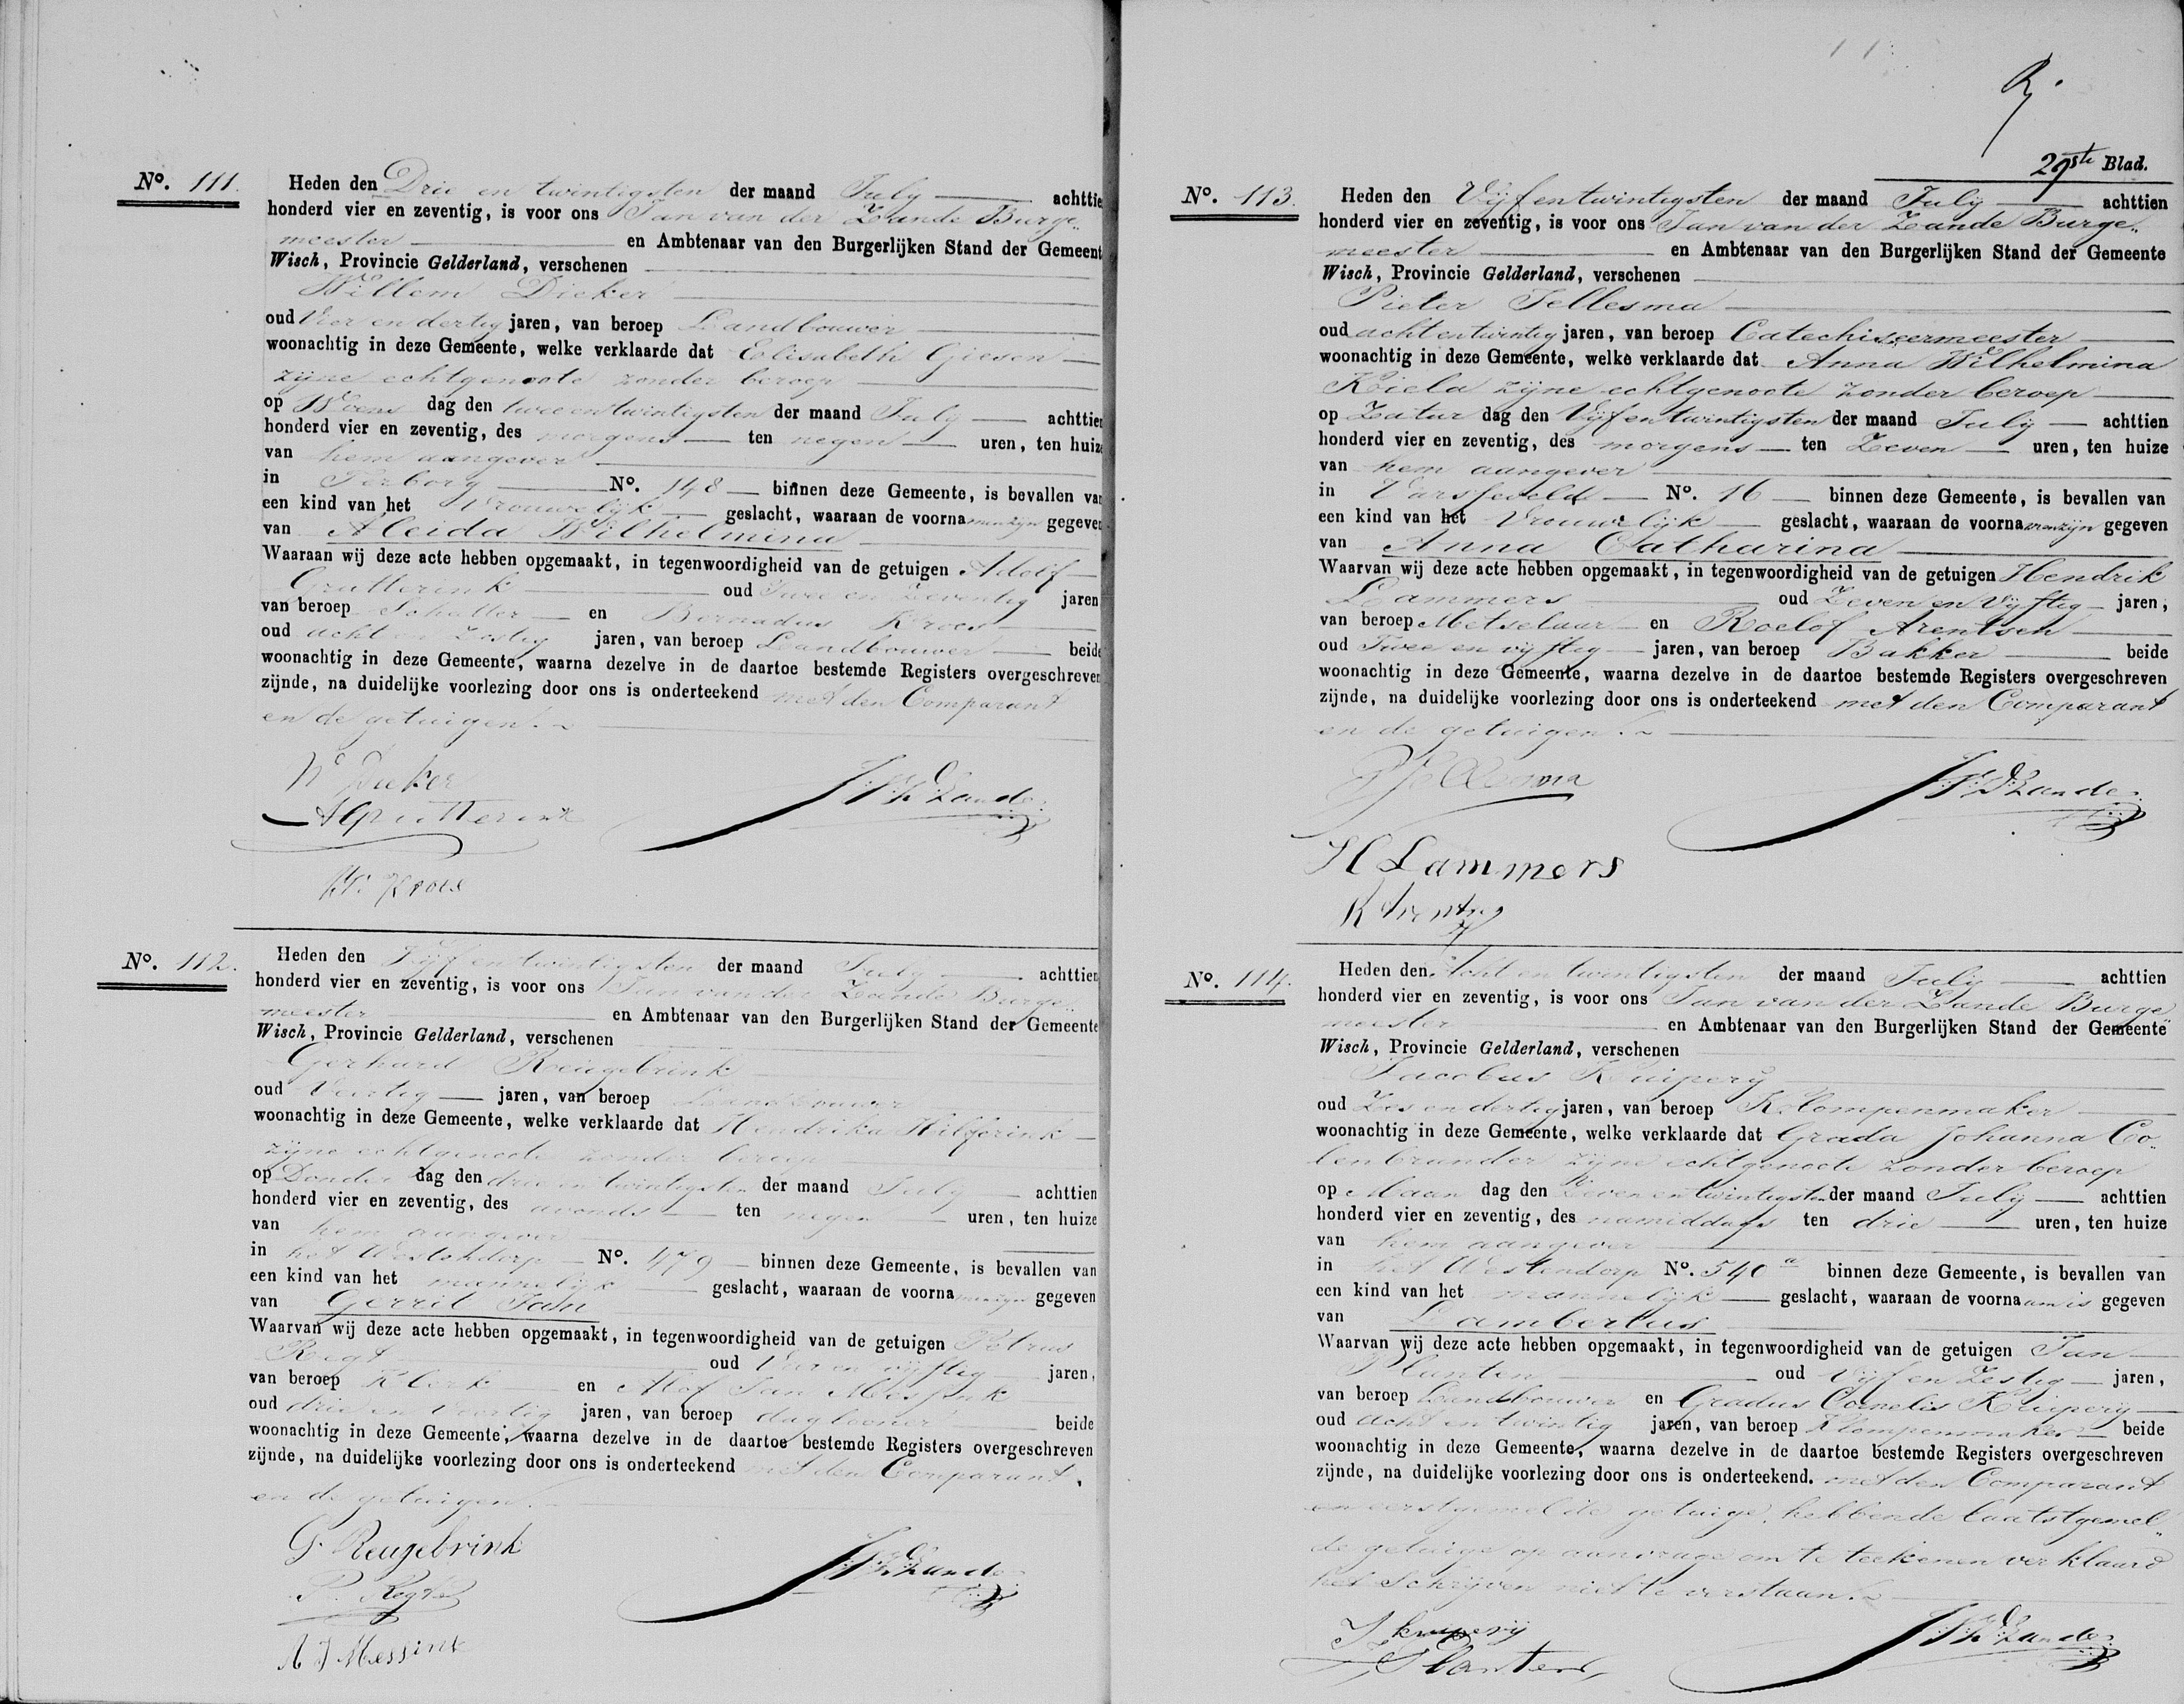 No. 111.
Heden den Drie en twintigsten der maand July achttie
honderd vier en zeventig, is voor ons Jan van der Zande Burge„
meester en Ambtenaar van den Burgerlijken Stand der Gemeent
Wisch, Provincie Gelderland, verschenen
Willem Dieker
oud Vier en dertig jaren, van beroep Landbouwer
woonachtig in deze Gemeente, welke verklaarde dat Elisabeth Giesen
zijne echtgenoote zonder beroep
op Woens dag den twee en twintigsten der maand July achttien
honderd vier en zeventig, des morgens ten negen uren, ten huize
van hem aangever
in Terborg No. 148 binnen deze Gemeente, is bevallen van
een kind van het Vrouwelijk geslacht, waaraan de voornamen zijn gegeven
van Aleida Wilhelmina
Waaraan wij deze acte hebben opgemaakt, in tegenwoordigheid van de getuigen Adolf
Grutterink oud Twee en Zeventig jaren
van beroep Schatter en Bernadus Kroes
oud acht en Zestig jaren, van beroep Landbouwer beide
woonachtig in deze Gemeente, waarna dezelve in de daartoe bestemde Registers overgeschreven
zijnde, na duidelijke voorlezing door ons is onderteekend met den Comparant
en de getuigen.
W Dieker
JVD Zande
A Grutterink
Kroes
No. 112.
Heden den Vijf en twintigsten der maand July achttien
honderd vier en zeventig, is voor ons Jan van der Zande Burge„
meester en Ambtenaar van den Burgerlijken Stand der Gemeente
Wisch, Provincie Gelderland, verschenen
Gerhard Reugebrink
oud Veertig jaren, van beroep Landbouwer
woonachtig in deze Gemeente, welke verklaarde dat Hendrika Hilferink
zijne echtgenoote zonder beroep
op Donder dag den drie en twintigsten der maand July achttien
honderd vier en zeventig, des avonds ten negen uren, ten huize
van hem aangever
in het Westendorp No. 479 binnen deze Gemeente, is bevallen van
een kind van het mannelijk geslacht, waaraan de voornamen zijn gegeven
van Gerrit Jan
Waarvan wij deze acte hebben opgemaakt, in tegenwoordigheid van de getuigen Petrus
Regt oud Vier en vijftig jaren,
van beroep Klerk en Alof Jan Messink
oud drie en Veertig jaren, van beroep daglooner beide
woonachtig in deze Gemeente, waarna dezelve in de daartoe bestemde Registers overgeschreven
zijnde, na duidelijke voorlezing door ons is onderteekend met den Comparant
en de getuigen.
G. Reugebrink
JVD Zande
P. Regt
A J Messink
29ste Blad.
No. 113.
Heden den Vijf en twintigsten der maand July achttien
honderd vier en zeventig, is voor ons Jan van der Zande Burge„
meester en Ambtenaar van den Burgerlijken Stand der Gemeente
Wisch, Provincie Gelderland, verschenen
Pieter Jellesma
oud acht en twintig jaren, van beroep Catechiseermeester
woonachtig in deze Gemeente, welke verklaarde dat Anna Wilhelmina
Kiela zijne echtgenoote zonder beroep
op Zatur dag den Vijf en twintigsten der maand July achttien
honderd vier en zeventig, des morgens ten Zeven uren, ten huize
van hem aangever
in Varsseveld No. 16 binnen deze Gemeente, is bevallen van
een kind van het Vrouwelijk geslacht, waaraan de voornamen zijn gegeven
van Anna Catharina
Waarvan wij deze acte hebben opgemaakt, in tegenwoordigheid van de getuigen Hendrik
Lammers oud Zeven en Vijftig jaren,
van beroep Metselaar en Roelof Arentsen
oud Twee en vijftig jaren, van beroep Bakker beide
woonachtig in deze Gemeente, waarna dezelve in de daartoe bestemde Registers overgeschreven
zijnde, na duidelijke voorlezing door ons is onderteekend met den Comparant
en de getuigen.
P Jellesma
JVD Zande
H Lammers
R Arentsen
No. 114.
Heden den Acht en twintigsten der maand July achttien
honderd vier en zeventig, is voor ons Jan van der Zande Burge„
meester en Ambtenaar van den Burgerlijken Stand der Gemeente
Wisch, Provincie Gelderland, verschenen
Jacobus Kuipery
oud Zes en dertig jaren, van beroep Klompenmaker
woonachtig in deze Gemeente, welke verklaarde dat Grada Johanna Co„
lenbrander zijne echtgenoote zonder beroep
op Maan dag den Zeven en twintigsten der maand July achttien
honderd vier en zeventig, des namiddags ten drie uren, ten huize
van hem aangever
in het Westendorp No. 540a binnen deze Gemeente, is bevallen van
een kind van het mannelijk geslacht, waaraan de voornaam is gegeven
van Lambertus
Waarvan wij deze acte hebben opgemaakt, in tegenwoordigheid van de getuigen Jan
Planten oud Vijf en Zestig jaren,
van beroep Landbouwer en Gradus Cornelis Kuipery
oud acht en twintig jaren, van beroep Klompenmaker beide
woonachtig in deze Gemeente, waarna dezelve in de daartoe bestemde Registers overgeschreven
zijnde, na duidelijke voorlezing door ons is onderteekend. met den Comparant
en eerstgemelde getuige, hebbende laatstgemel„
de getuige op aanvrage om te teekenen verklaard
het Schrijven niet te verstaan.
J kuiperij
JVD Zande
J Planten